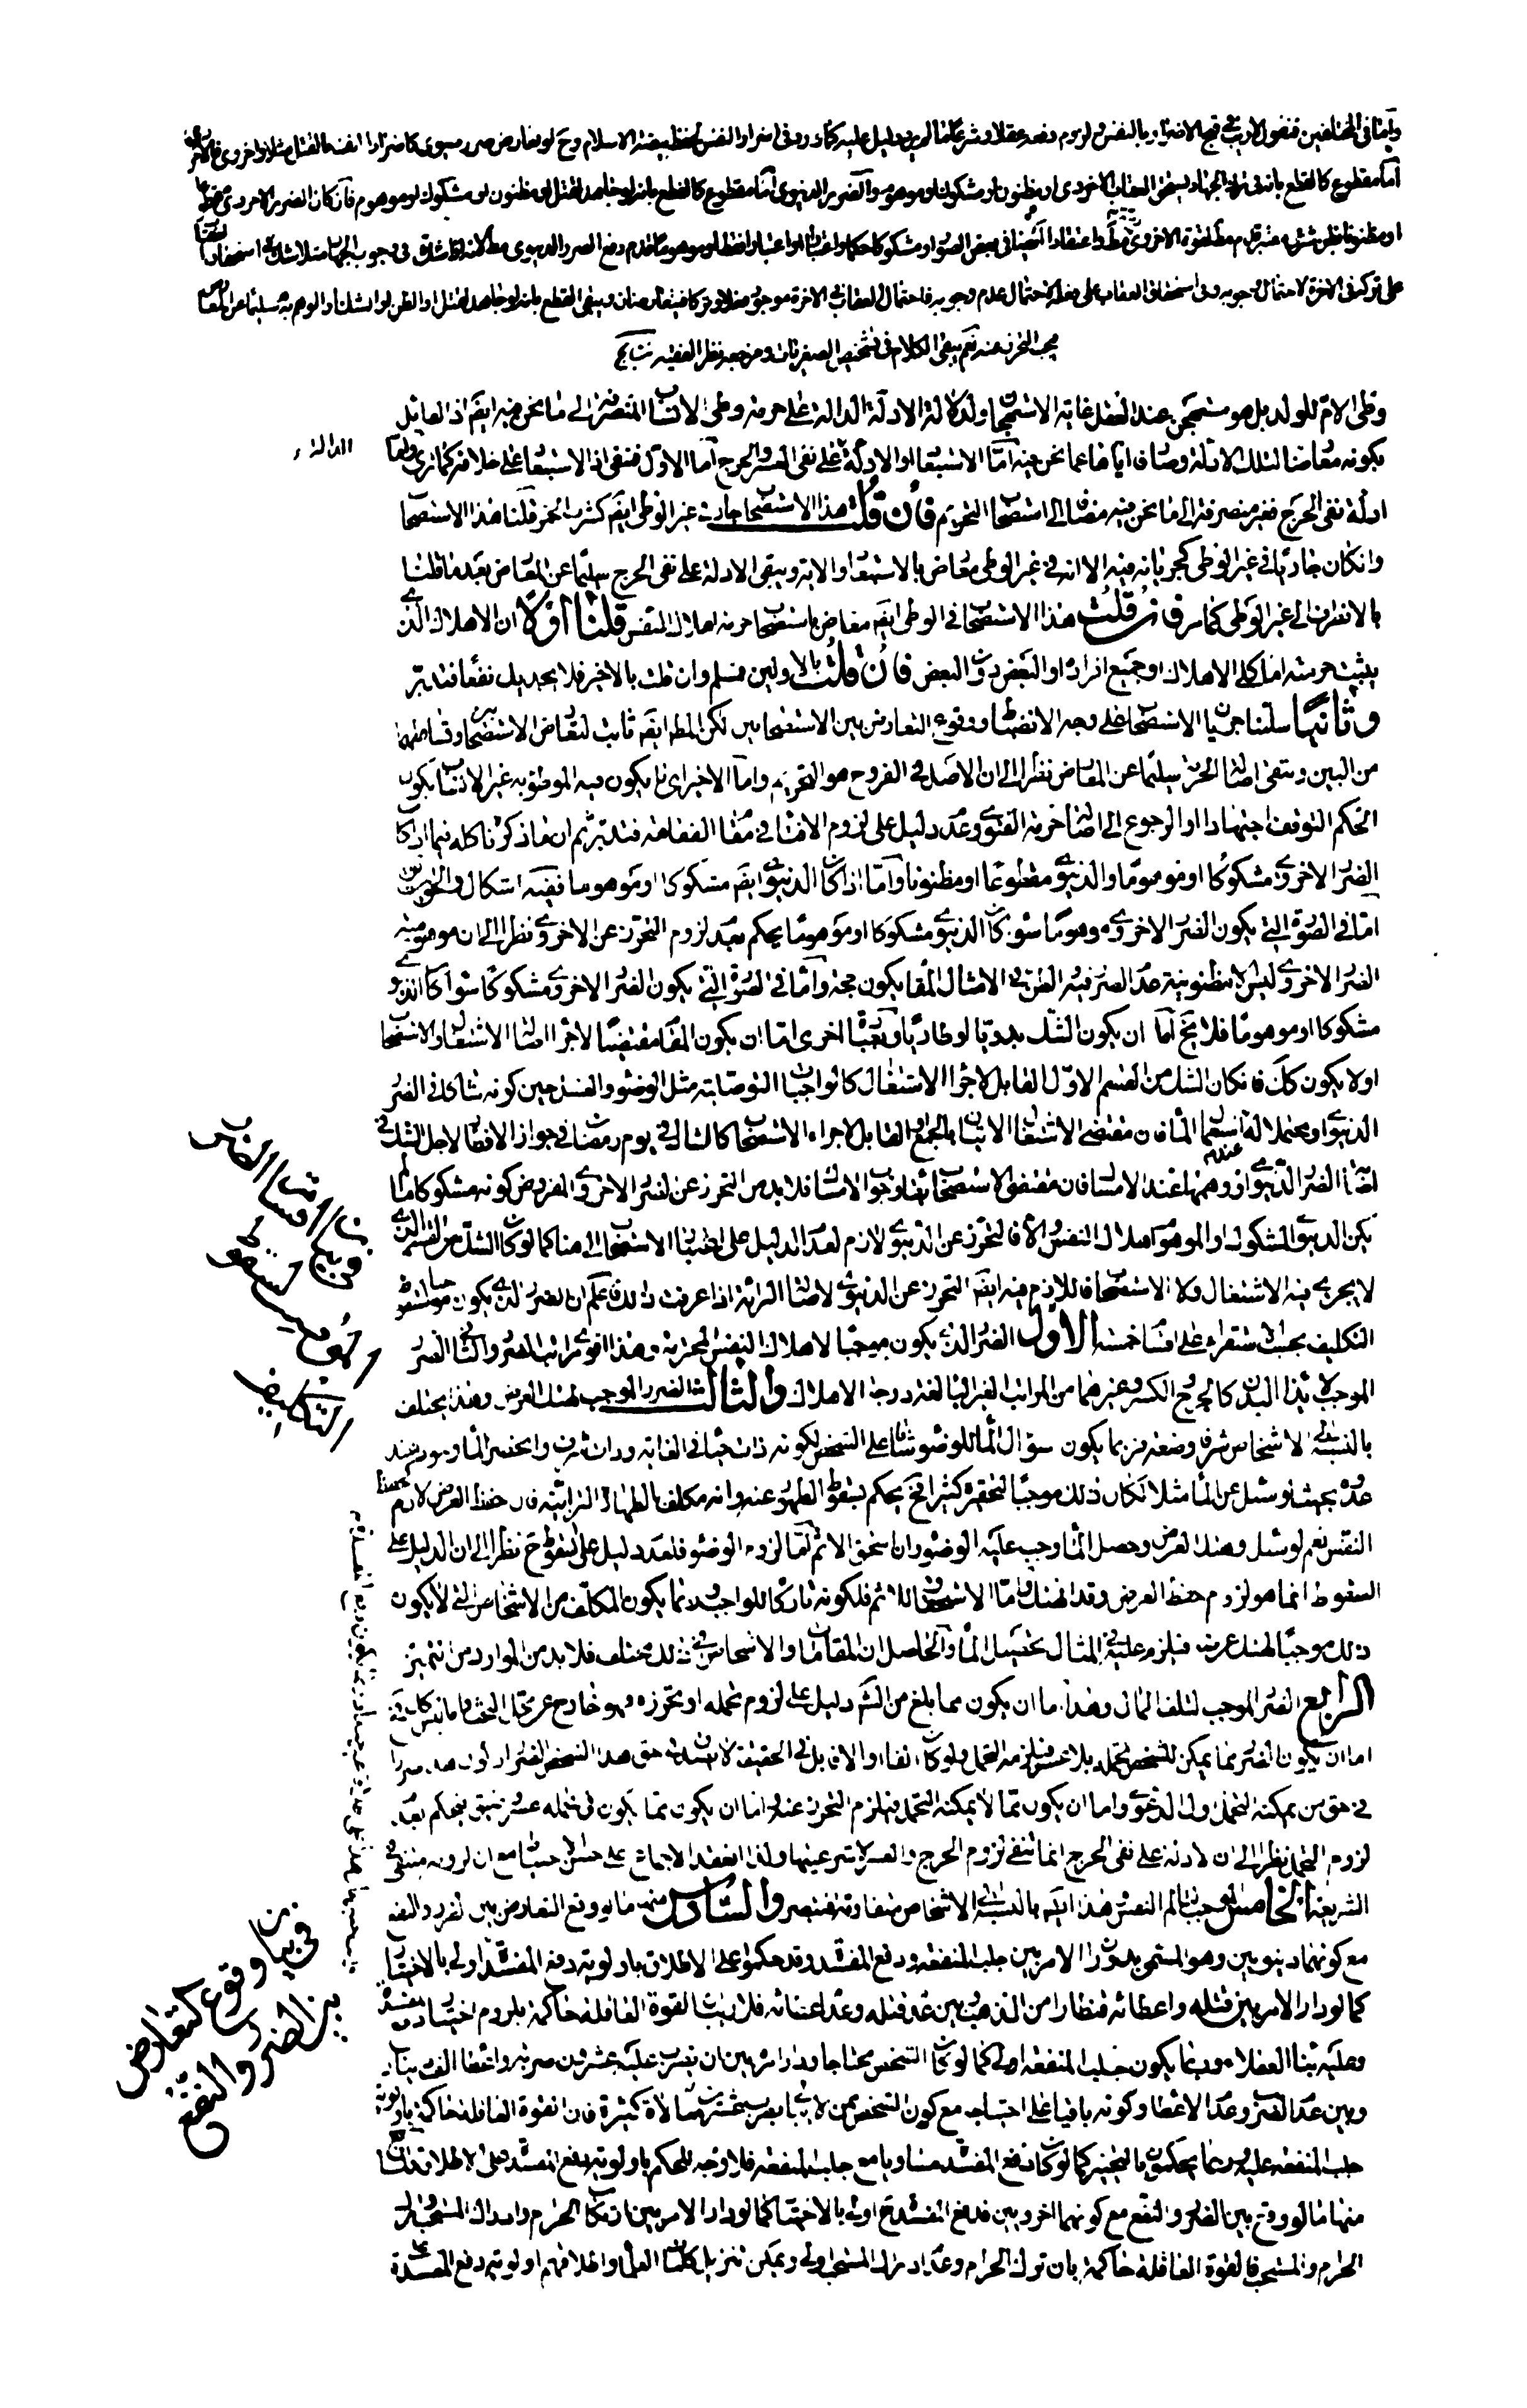 واما في المختلفين فنقول لا ريب في قبح الاضرار بالنفس ولزوم دفعه عقلا وشرعا ما لم يرد دليل عليه كما ورد في اضرار النفس لحفظ بيضة الاسلام وح لو تعارض ضرر دنيوي كاضرار نفسه بالقتل مثلا واخروي فالاخروي
اما مقطوع كالقطع بانه في ترك الجهاد يستحق العقاب الاخروي او مظنون او مشكوك او موهوم والضرر الدنيوي اما مقطوع كالقطع بانه لو جاهد لقتل او مظنون او مشكوك او موهوم فان كان الضرر الاخروي مقطوعا
او مظنونا بظن معتبر قدم مطلقا
على تركه في الاخرة لاحتمال وجوبه وفي استحقاق العقاب على فعله لاحتمال عدم وجوبه فاحتمال العقاب في الاخرة موجود فعلا وتركا فيتعارضان ويبقى القطع بانه لو جاهد لقتل او الظن او الشك او الوهم به سليما عن المعارض
فيجب التحرز عنه نعم يبقى الكلام في تشخيص الصغريات ومرجعه نظر الفقيه
وطي الام للولد بل هو مستهجن عند العقل غاية الاستهجان ولدلالة الادلة الدالة على حرمة وطي الانسان المنصرفة الى ما نحن فيه ايضا اذ القائل
بكونه معارضا لتلك الادلة وصارفا اياها عما نحن فيه اما الاستبعاد او الادلة الدالة على نفي العسر والحرج اما الاول فمنفي اذ الاستبعاد على خلافه كما ترى واما
ادلة نفي الحرج فغير منصرفة الى ما نحن فيه مضافا الى استصحاب التحريم فان قلت هذا الاستصحاب جار في غير الوطي ايضا كشرب الخمر قلنا هذا الاستصحاب
وان كان جاريا في غير الوطي كجريانه فيه الا انه في غير الوطي معارض بالاستبعاد والاية ويبقى الادلة على نفي الحرج سليما عن المعارض بعد ما قلنا
بالانصراف الى غير الوطي كما مر فان قلت هذا الاستصحاب في الوطي ايضا معارض باستصحاب حرمة اهلاك النفس قلنا اولا ان الاهلاك الذي
يثبت حرمته اما كلي الاهلاك او جميع افراده او البعض دون البعض فان قلت بالاولين فمسلم وان قلت بالاخير فلا يجديك نفعا فتدبر
وثانيا سلمنا جريان الاستصحاب على وجه الانضباط ووقوع التعارض بين الاستصحابين لكن المط ايضا ثابت لتعارض الاستصحابين وتساقطهما
من البين ويبقى اصالة الحرمة سليما عن المعارض نظرا الى ان الاصل في الفروج هو التحريم واما الاخير اي ما يكون فيه الموطوء به غير الانسان يكون
الحكم التوقف اجتهادا والرجوع الى اصالة حرمة الفتوى وعدم دليل على لزوم الافتاء في مقام الفقاهة فتدبر ثم ان ما ذكرنا كله فيما اذا كان
الضرر الاخروي مشكوكا او موهوما والدنيوي مقطوعا او مظنونا واما اذا كان الدنيوي ايضا مشكوكا او موهوما ففيه اشكال والحق
اما في الصورة التي يكون الضرر الاخروي موهوما سواء كان الدنيوي مشكوكا او موهوما يحكم بعدم لزوم التحرز عن الاخروي نظرا الى ان موهومية
الضرر الاخروي ليس الا مظنونية عدم الضرر فيه والظن في الامثال المقام يكون حجة واما في الصورة التي يكون الضرر الاخروي مشكوكا سواء كان الدنيوي
مشكوكا او موهوما فلا يخ اما ان يكون الشك بدويا او طاريا وبعبارة اخرى اما ان يكون المقام مقتضيا لاجراء اصالة الاشتغال والاستصحاب
او لا يكون كك فان كان الشك من القسم الاول القابل لاجراء الاشتغال كالواجبات التوصلية مثل الوضوء والغسل حين كونه شاكا في الضرر
الدنيوي او محتملا له استعمال الماء فان مقتضى الاشتغال الاتيان بالجميع والقابل لاجراء الاستصحاب كالشاك في يوم رمضان في جواز الافطار لاجل الشك في
لقاء الضرر الدنيوي او وهمها عند الامساك فان مقتضى الاستصحاب بقاء وجوب الامساك فلا بد من التحرز عن الضرر الاخروي المفروض كونه مشكوكا ما لم
يكن الدنيوي المشكوك او الموهوم اهلاك النفس والا فالتحرز عن الدنيوي لازم لعدم الدليل على اطباق الاستصحاب الى هنا كما لو كان الشك من القسم الذي
لا يجري فيه الاشتغال ولا الاستصحاب فاللازم فيه ايضا التحرز عن الدنيوي لاصالة البرائة اذا عرفت ذلك فاعلم ان الضرر الذي يكون موجبا لسقوط
التكليف بحسب الاستقراء على اقسام خمسة الاول الضرر الذي يكون موجبا لاهلاك النفس المحترمة وهذا اقوى مراتب الضرر والثاني الضرر
الموجب لايذاء البدن كالجرح والكسر وغيرهما من المراتب الغير البالغة درجة الاهلاك والثالث الضرر الموجب لهتك العرض وهذا يختلف
بالنسبة الى الاشخاص شرفا وضعة فربما يكون سؤال الماء للوضوء شاقا على الشخص لكونه ذا شأن في الغاية وذات شرف وانحصر الماء وموردا عند
عدوه بحيث لو سئل عن الماء مثلا لكان ذلك موجبا لتحقيره كثيرا فح يحكم بسقوط الطهور عنه وانه مكلف بالطهارة الترابية فان حفظ العرض لازم كحفظ
النفس نعم لو سئل وهتك العرض وحصل الماء وجب عليه الوضوء وان استحق الاثم اما لزوم الوضوء فلعدم دليل على سقوطه ح نظرا الى ان الدليل على
السقوط انما هو لزوم حفظ العرض وقد انهتك واما الاستحقاق للاثم فلكونه تاركا للواجب وربما يكون المكلف من الاشخاص التي لا يكون
ذلك موجبا لهتك عرضه فيلزم عليه في المثال تحصيل الماء والحاصل ان المقامات والاشخاص في ذلك مختلف فلا بد من الموارد من التميز
الرابع الضرر الموجب لتلف المال وهذا اما ان يكون مما بلغ من الشرع دليل على لزوم تحمله او تحرزه وهو خارج عن محل البحث واما ليس كك فح
اما ان يكون الضرر مما يمكن للشخص تحمله بلا عسر فيلزمه التحمل ولو كان الفا او الاف بل في الحقيقة لا يسند في حق هذا الشخص الضرر او ان صدق ضررا
في حق من يمكنه التحمل اول الدعوى واما ان يكون مما لا يمكنه التحمل فيلزم التحرز عنه واما ان يكون مما يكون في تحمله عسر فيحكم بعدم
لزوم التحمل نظرا الى ان الادلة على نفي الحرج انما تنفي لزوم الحرج والعسر لا شرعيتهما ولذا انعقد الاجماع على حسن الاحتياط مع ان لزومه منفي في
الشريعة الخامس الموجب لتالم النفس هذا ايضا بالنسبة الى الاشخاص متفاوتة فتبصر والسادس منها ما لو وقع التعارض بين الضرر والنفع
مع كونهما دنيويين وهو المسمى بدوران الامر بين جلب المنفعة ودفع المفسدة وقد حكموا على الاطلاق باولوية دفع المفسدة اولى بالاختيار
كما لو دار الامر بين قتله واعطائه قنطارا من الذهب وبين عدم قتله وعدم اعطائه فلا ريب ان القوة العاقلة حاكمة بلزوم اختيار دفع المفسدة
وعليه بناء العقلاء وربما يكون جلب المنفعة اولى كما لو كان الشخص محتاجا ودار امره بين ان يضرب عليه عشرون ضربة واعطاء الف دينار
وبين عدم الضرب وعدم الاعطاء وكونه باقيا على احتياجه مع كون الشخص ممن لا يبالي بضرب عشرين مبالاة كثيرة فان القوة العاقلة حاكمة باولوية
جلب المنفعة عليه وربما يحكمون بالتخيير كما لو كان دفع المفسدة مساويا مع جلب المنفعة فلا وجه للحكم باولوية دفع المفسدة على الاطلاق
منها ما لو وقع بين الضرر والنفع مع كونهما اخرويين فدفع المفسدة اولى بالاختيار كما لو دار الامر بين ارتكاب الحرام وادراك المستحب وترك
الحرام والمستحب فالقوة العاقلة حاكمة بان ترك الحرام وعدم ادراك المستحب اولى ويمكن تنزيل كلمات العلماء واطلاقهم اولوية دفع المفسدة على
الدالة
في بيان اقسام الضرر
الموجب لسقوط
التكليف
في بيان وقوع التعارض
بين الضرر والنفع